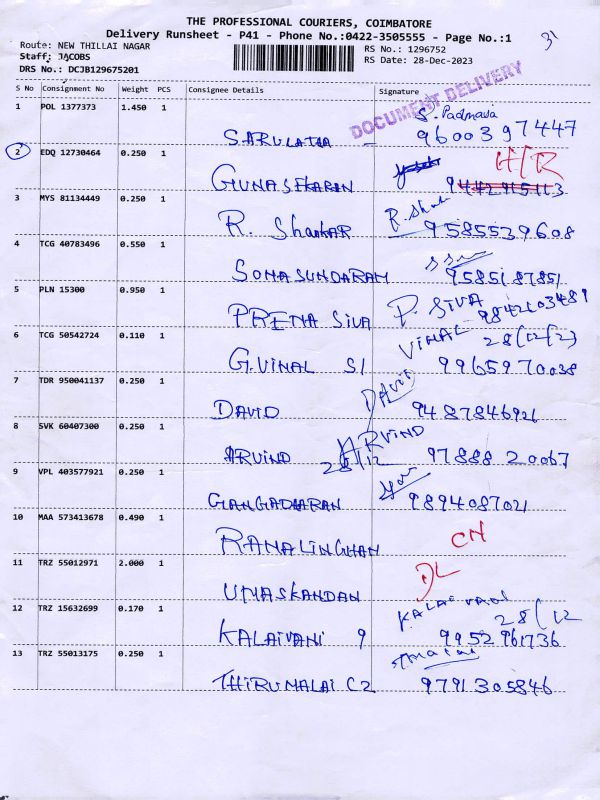 THE PROFESSIONAL COURIERS, COIMBATORE
Delivery Runsheet - P41 - Phone No.:0422-3505555 - Page No.:1
Route: NEW THILLAI NAGAR
RS No.: 1296752
Staff: JACOBS
RS Date: 28-Dec-2023
DRS No.: DCJB129675201
DOCUMENT DELIVERY
S No Consignment No Weight PCS Consignee Details Signature
1 POL 1377373 1.450 1
S. Padmava
S.ARULATHA - 9600397447
2 EDQ 12730464 0.250 1
H/R
GUNASEKARAN 9442915113
3 MYS 81134449 0.250 1
R. Shankar 9585539608
4 TCG 40783496 0.550 1
SOMASUNDARAM 9585187851
5 PLN 15300 0.950 1
P. SIVA
PREMA SIVA 9842103481
6 TCG 50542724 0.110 1
VIMAL 28/12/2)
G.VIMAL S1 9965970038
7 TDR 950041137 0.250 1
DAVID
DAVID 9487846921
8 SVK 60407300 0.250 1
ARVIND
ARVIND 28/12 97888 20067
9 VPL 403577921 0.250 1
GANGADHARAN 9894087021
10 MAA 573413678 0.490 1
RAMALINGHAN CN
11 TRZ 55012971 2.000 1
DL
UMASKANDAN
12 TRZ 15632699 0.170 1
KALAIVANI 28/12
KALAIVANI 9 9952961736
13 TRZ 55013175 0.250 1
THIRUMALAI C2 9791305846